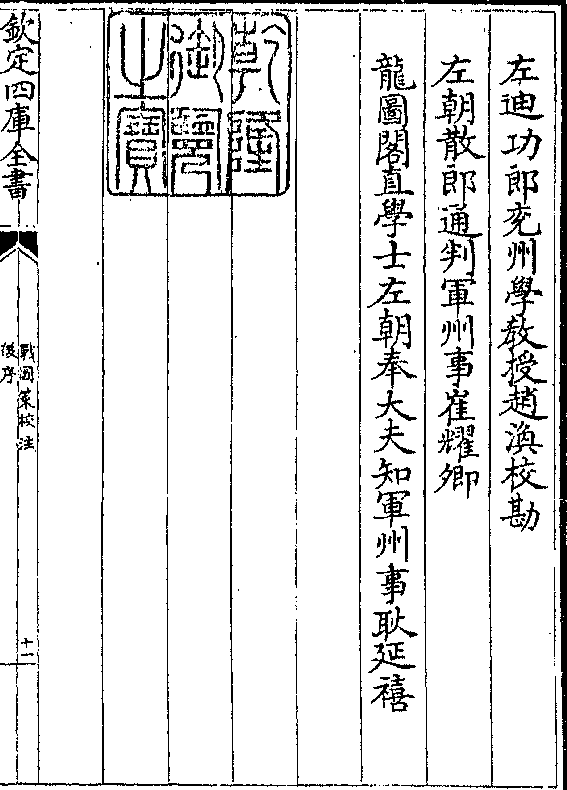 左迪功郎兖州學教授趙渙校勘
左朝散郎通判軍州事崔耀卿
龍圖閣直學士左朝奉大夫知軍州事耿延禧
乾隆
御覽
之寶
欽定四庫全書
戰國策校注
後序
十一